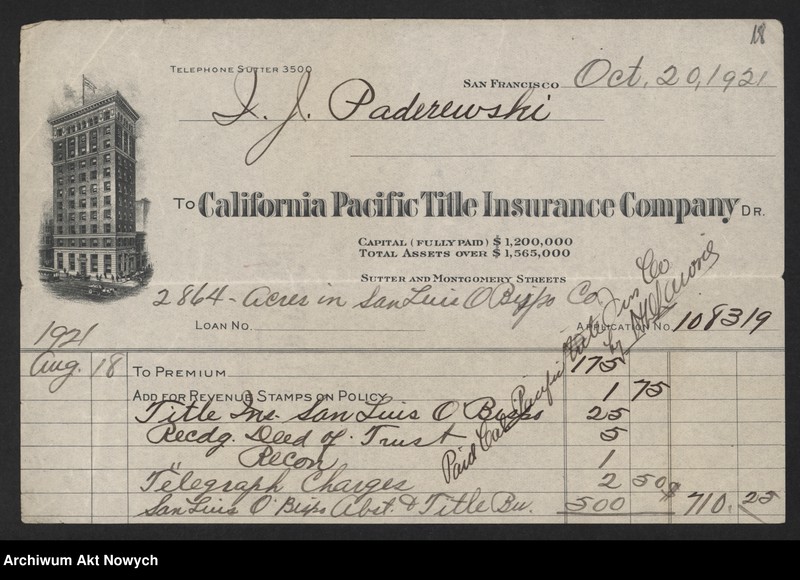 18
TELEPHONE SUTTER 3500
SAN FRANCISCO Oct. 20, 1921
I. J. Paderewski
TO California Pacific Title Insurance Company DR.
CAPITAL (FULLY PAID) $1,200,000
TOTAL ASSETS OVER $1,565,000
SUTTER AND MONTGOMERY STREETS
2864 - Acres in San Luis O Bispo Co.
LOAN NO. APPLICATION NO. 108319
1921
Aug. 18 TO PREMIUM 175
ADD FOR REVENUE STAMPS ON POLICY 1 75
Title Ins. San Luis O' Bispo 25
Recdg. Deed of Trust 5
" Recon 1
Telegraph Charges 2 50
San Luis O' Bispo Abst. & Title Bu. 500 710. 25
Paid Cal. Pacific Title Ins Co
by
Archiwum Akt Nowych